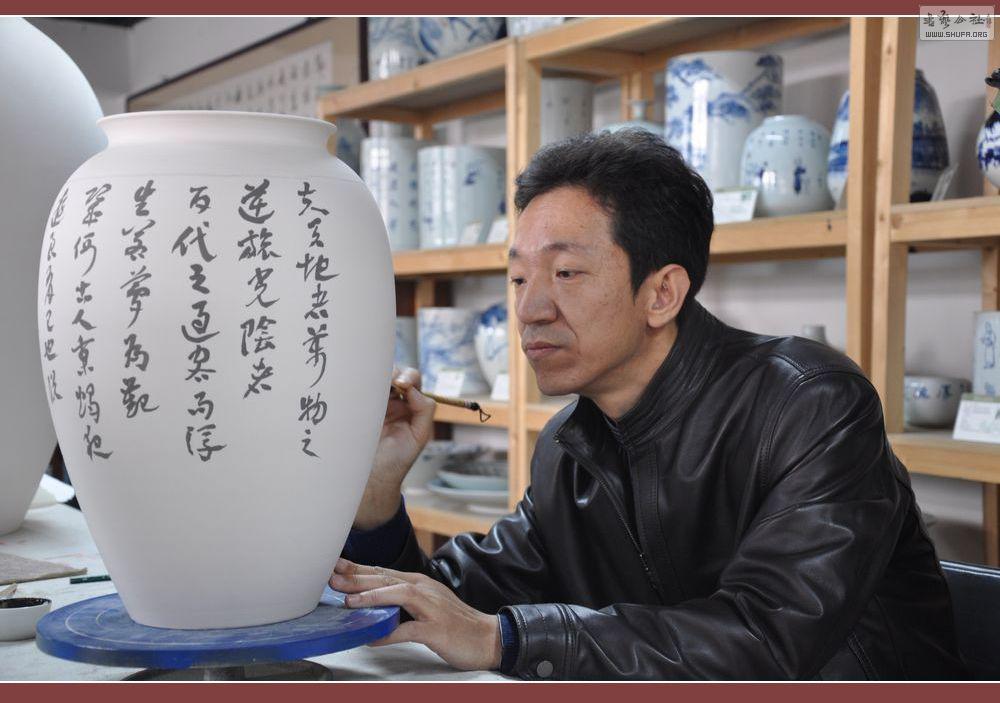 夫天地者萬物之
逆旅光陰者
百代之過客而浮
生若夢為歡
幾何古人秉燭夜
遊良有以也況
書藝公社
WWW.SHUFA.ORG